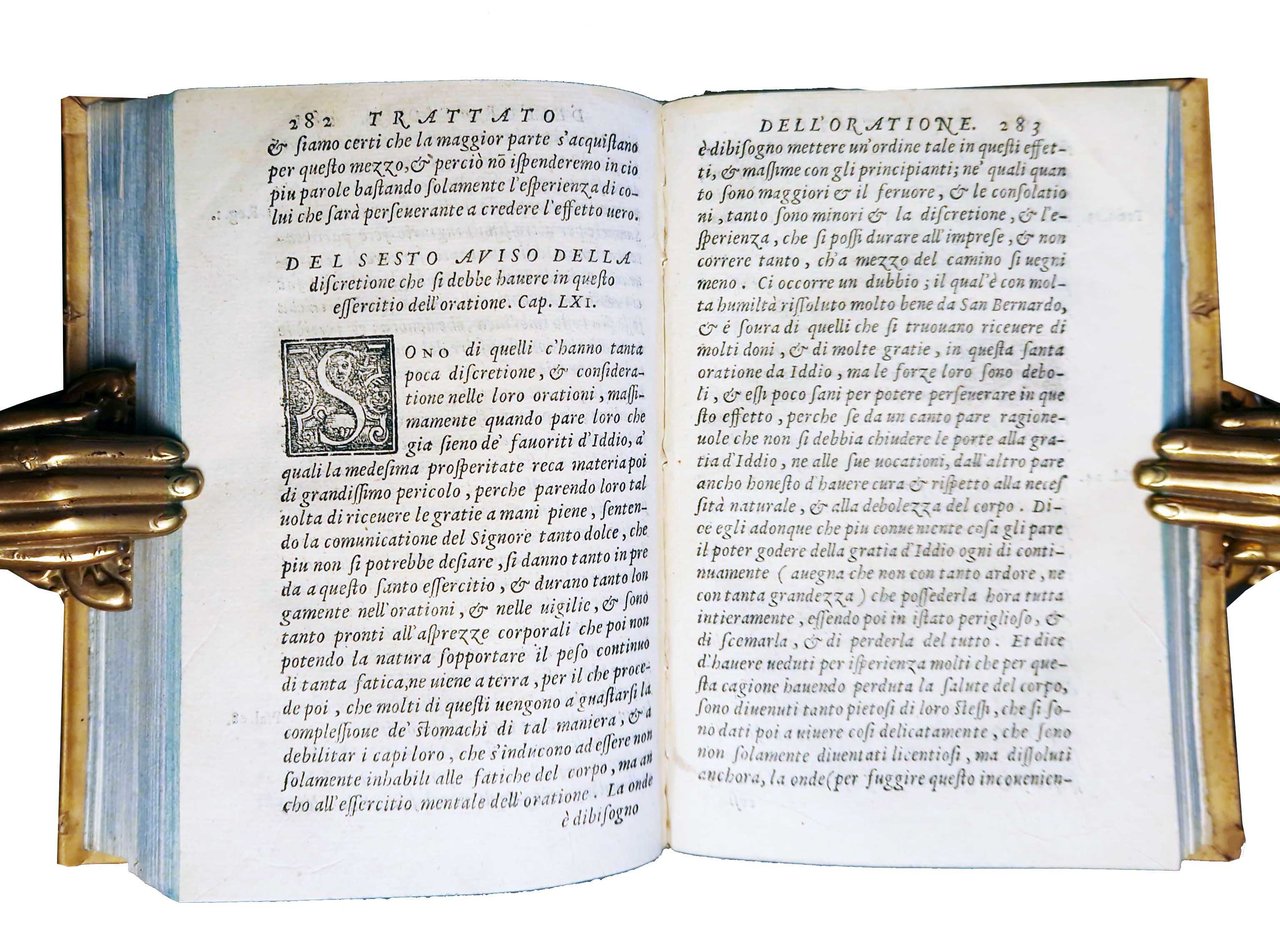 282 TRATTATO
& ſiamo certi che la maggior parte s'acquiſtano
per queſto mezzo, & perciò nō iſpenderemo in cio
piu parole baſtando ſolamente l'eſperienza di co-
lui che ſarà perſeuerante a credere l'effetto uero.
DEL SESTO AVISO DELLA
diſcretione che ſi debbe hauere in queſto
eſſercitio dell'oratione. Cap. LXI.
SONO di quelli c'hanno tanta
poca diſcretione, & conſidera-
tione nelle loro orationi, maſſi-
mamente quando pare loro che
gia ſieno de' fauoriti d'Iddio, a'
quali la medeſima proſperitate reca materia poi
di grandiſſimo pericolo, perche parendo loro tal
uolta di riceuere le gratie a mani piene, ſenten-
do la comunicatione del Signore tanto dolce, che
piu non ſi potrebbe deſiare, ſi danno tanto in pre
da a queſto ſanto eſſercitio, & durano tanto lon
gamente nell'orationi, & nelle uigilie, & ſono
tanto pronti all'aſprezze corporali che poi non
potendo la natura ſopportare il peſo continuo
di tanta fatica, ne uiene a terra, per il che proce-
de poi, che molti di queſti uengono a guaſtarſi la
compleſſione de' ſtomachi di tal maniera, & a
debilitar i capi loro, che s'inducono ad eſſere non
ſolamente inhabili alle fatiche del corpo, ma an
cho all'eſſercitio mentale dell'oratione. La onde
è dibiſogno
DELL'ORATIONE. 283
è dibiſogno mettere un'ordine tale in queſti effet-
ti, & maſſime con gli principianti; ne' quali quan
to ſono maggiori & il feruore, & le conſolatio
ni, tanto ſono minori & la diſcretione, & l'e-
ſperienza, che ſi poſſi durare all'impreſe, & non
correre tanto, ch'a mezzo del camino ſi uegni
meno. Ci occorre un dubbio; il qual'è con mol-
ta humiltà riſſoluto molto bene da San Bernardo,
& é ſoura di quelli che ſi truouano riceuere di
molti doni, & di molte gratie, in queſta ſanta
oratione da Iddio, ma le forze loro ſono debo-
li, & eſſi poco ſani per potere perſeuerare in que
ſto effetto, perche ſe da un canto pare ragione-
uole che non ſi debbia chiudere le porte alla gra-
tia d'Iddio, ne alle ſue uocationi, dall'altro pare
ancho honeſto d'hauere cura & riſpetto alla neceſ
ſità naturale, & alla debolezza del corpo. Di-
ce egli adonque che piu conueniente coſa gli pare
il poter godere della gratia d'Iddio ogni di conti-
nuamente ( auegna che non con tanto ardore, ne
con tanta grandezza ) che poſſederla hora tutta
intieramente, eſſendo poi in iſtato periglioſo, &
di ſcemarla, & di perderla del tutto. Et dice
d'hauere ueduti per iſperienza molti che per que-
ſta cagione hauendo perduta la ſalute del corpo,
ſono diuenuti tanto pietoſi di loro ſteſſi, che ſi ſo-
no dati poi a uiuere coſi delicatamente, che ſono
non ſolamente diuentati licentioſi, ma diſſoluti
anchora, la onde (per fuggire queſto inconenien-